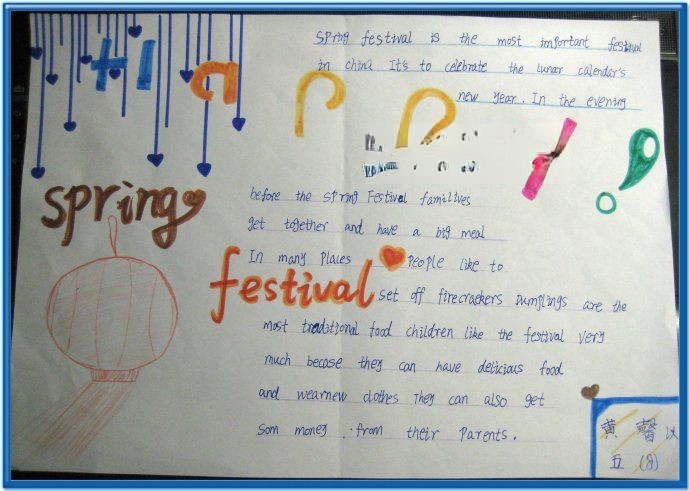 Spring festival is the most important festival
in china Its to celebrate the lunar calendar's
new year. In the evening
before the Spring Festival families
get together and have a big meal
In many Places People like to
set off firecraekers Dumplings are the
most traditional food children like the festival very
much becase they can have delicious food
and wearnew clothes They can also get
som money . from their Parents.
spring
festival
黄馨
五 (8)